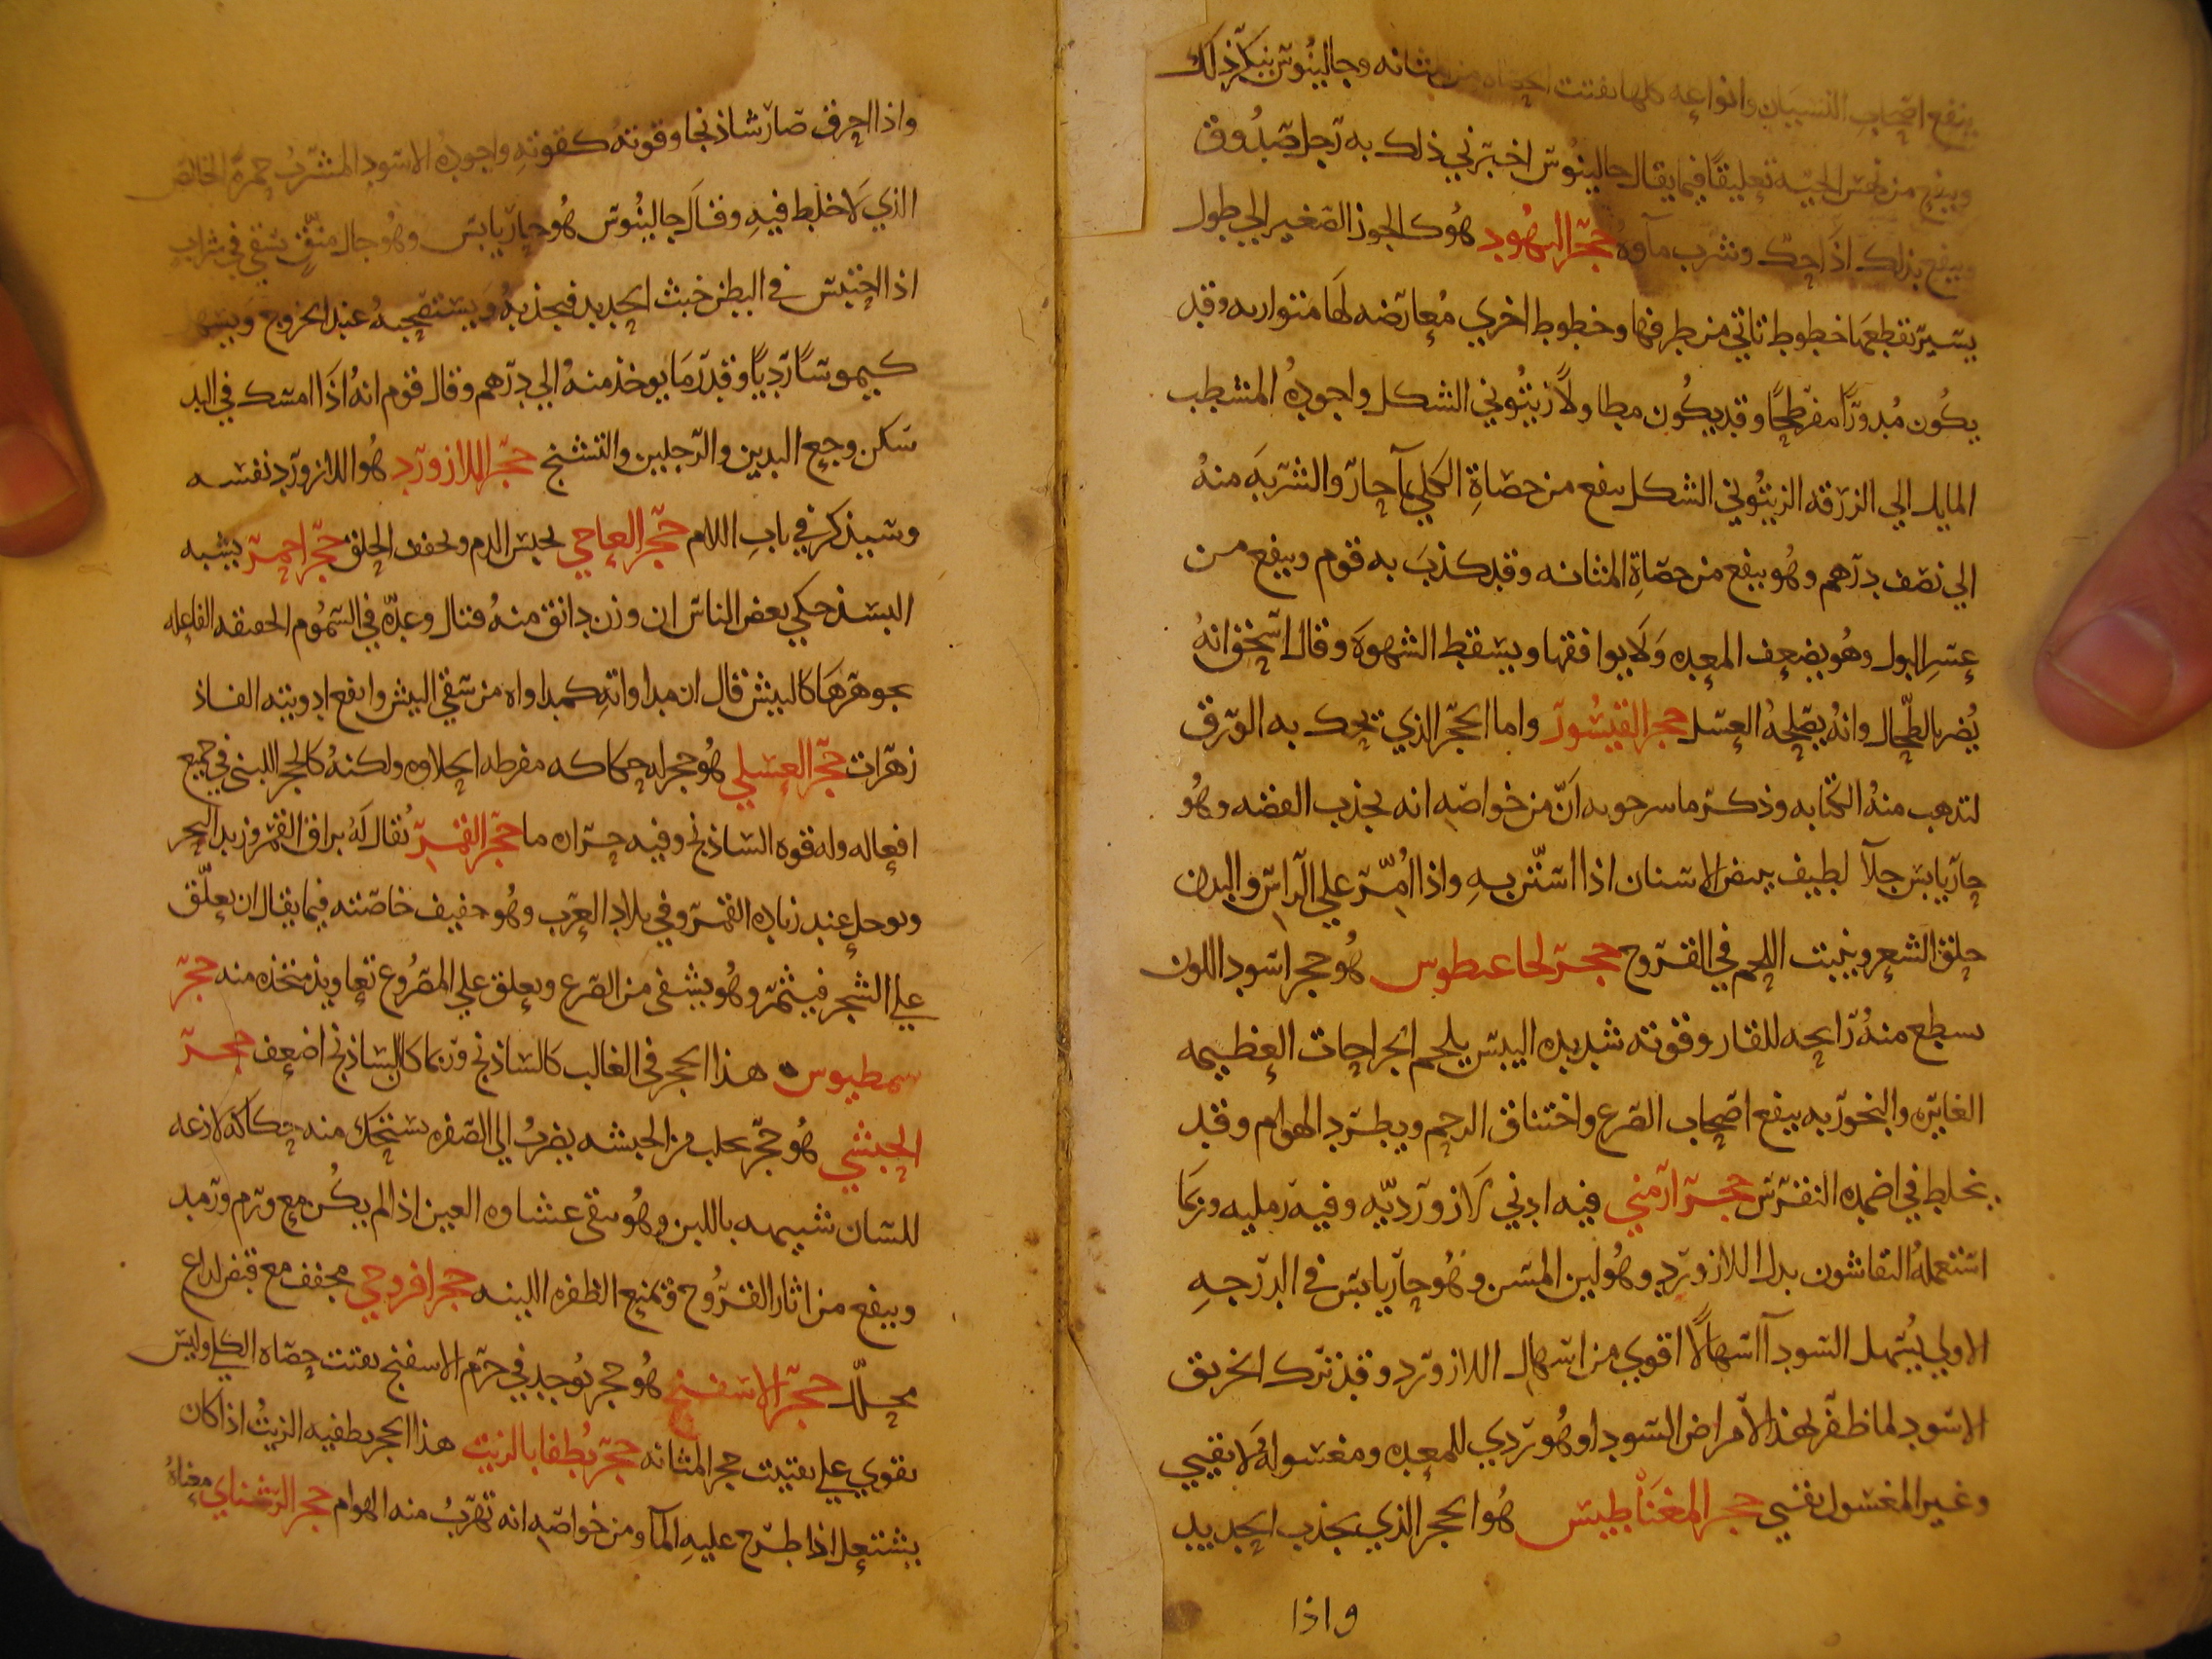 ينفع اصحاب النسيان وانواعه كلها تفتت الحصاه من مثانه وجالينوس ينكر ذلك
وينفع من نهش الحيه تعليقًا فيما يقال جالينوس اخبرني بذلك به رجل صدوق
وينفع بذلك اذا حك وشرب مآوه حجر اليهود هو كالجوز الصغير الي طول
يسير تقطعها خطوط تاتي من طرفها وخطوط اخري معارضه لها متواربه وقد
يكون مدورًا مفرطحًا وقد يكون مطاولًا زيتوني الشكل واجوده المشطب
المايل الي الزرقه الزيتوني الشكل ينفع من حصاةِ الكلي بمآ حار والشربه منه
الي نصف درهم وهو ينفع من حصاةِ المثانه وقد كذب به قوم وينفع من
عسر البول وهو يضعف المعده ولا يوافقها ويسقط الشهوه وقال اسحق انه
يضر بالطحال وانه يصلحه العسل حجر القيشور واما الحجر الذي يحك به الورق
لتدهب منه الكتابه وذكر ماسرحويه انّ من خواصه انه يجذب الفضه وهو
حار يابس جلآ لطيف يبيض الاسنان اذا استن به واذا امرّ علي الراس والبدن
حلق الشعر وينبت اللحم في القروح حجر لحاعىطوس هو حجر اسود اللون
يسطع منه رايحه للقار وقوته شديده اليبس يلحم الجراحات العظيمه
الغايره والبخور به ينفع اصحاب الصرع واختناق الرحم ويطرد الهوام وقد
يخلط في اضمده النقرس حجر ارمني فيه ادني لازورديّه وفيه رمليه وربما
استعمله النقاشون بدل اللازورد وهو لين المسن وهو حار يابس في الدرجهِ
الاولي يسهل السودآ اسهالًا اقوي من اسهال اللازورد وقد ترك الخربق
الاسود لما ظفر بهذا لامراض السودا وهو ردي للمعده ومغسوله لا يقيي
وغير المغسول يقيي حجر المغناطيس هو الحجر الذي يجذب الحديد
واذا
واذا احرق صار شاذنجا وقوته كقوتهِ واجوده الاسود المشرّب حمرة الخالص
الذي لا خلط فيهِ وقال جالينوس هو حار يابس وهو جال منقٍّ يسقي في شراب
اذا احتبس في البطن خبث الحديد فيجذبه ويستصحبه عند الخروج ويسهل
كيموسًا رديًا وقدر ما يوخذ منه الي درهم وقال قوم انه اذا امسك في اليد
سكن وجع اليدين والرجلين والتشنج حجر اللازورد هو اللازورد نفسه
وسيذكر في باب اللام حجر العاجي يحبس الدم ويجفف الحلق حجر احمر يشبه
البسذ حكي بعض الناس ان وزن دانق منه قتال وعدّه في السموم الحقيقه الفاعله
بجوهرها كالبيش قال ان مداواتهِ كمداواه من سقي البيش وانفع ادويته الفاذ
زهرات حجر العسلي هو حجر له حكاكه مفرطه الحلاوه ولكنه كالحجر اللبني في جميع
افعاله وله قوه الشاذنج وفيه حراره ما حجر القمر يقال له بزاق القمر وزبد البحر
ويوجد عند زياده القمر وفي بلاد العرب وهو خفيف خاصته فيما يقال ان يعلّق
علي الشجر فيثمر وهو يشفي من الصرع ويعلق علي المصروع تعاويذ متخذه منه حجر
سمطيوس هذا الحجر في الغالب كالشاذنج وربما كان الشاذنج اضعف حجر
الحبشي هو حجر يجلب من الحبشه يضرب الي الصفره يستحك منه حكاكه لاذعه
للسان شبيهه باللبن وهو ينقي غشاوه العين اذا لم يكن مع ورم ورمد
وينفع من اثار القروح ويمنع الظفره اللينه حجر افروجي مجفف مع قبض لداع
محلّل حجر الاسفنج هو حجر يوجد في جرم الاسفنج يفتت حصاه الكلي وليس
يقوي علي تفتيت حجر المثانه حجر يطفا بالزيت هذا الحجر يطفيه الزيت اذا كان
يشتعل اذا طرح عليهِ المآ ومن خواصه انه تهرب منه الهوام حجر الرشناي معناه